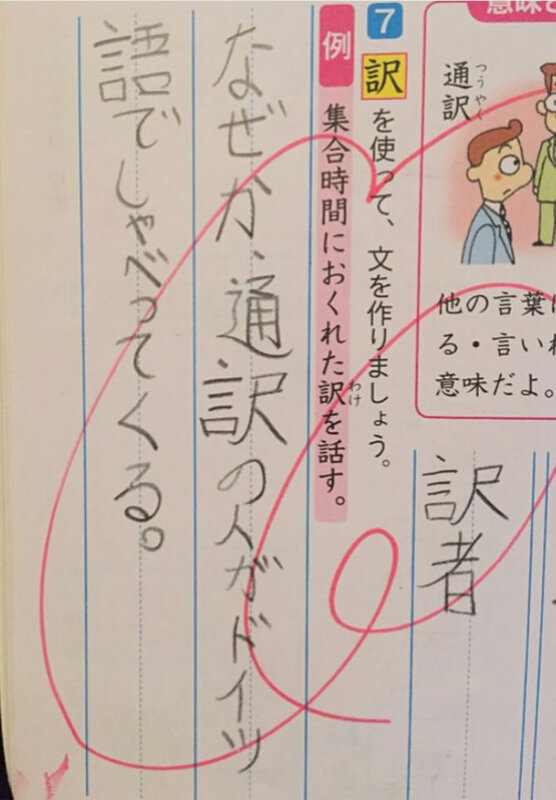 意味
通訳
つうやく
他の言葉に
る・言いわ
意味だよ。
訳者
7
訳を使って、文を作りましょう。
例
集合時間におくれた訳を話す。
わけ
なぜか、通訳の人がドイツ
語でしゃべってくる。